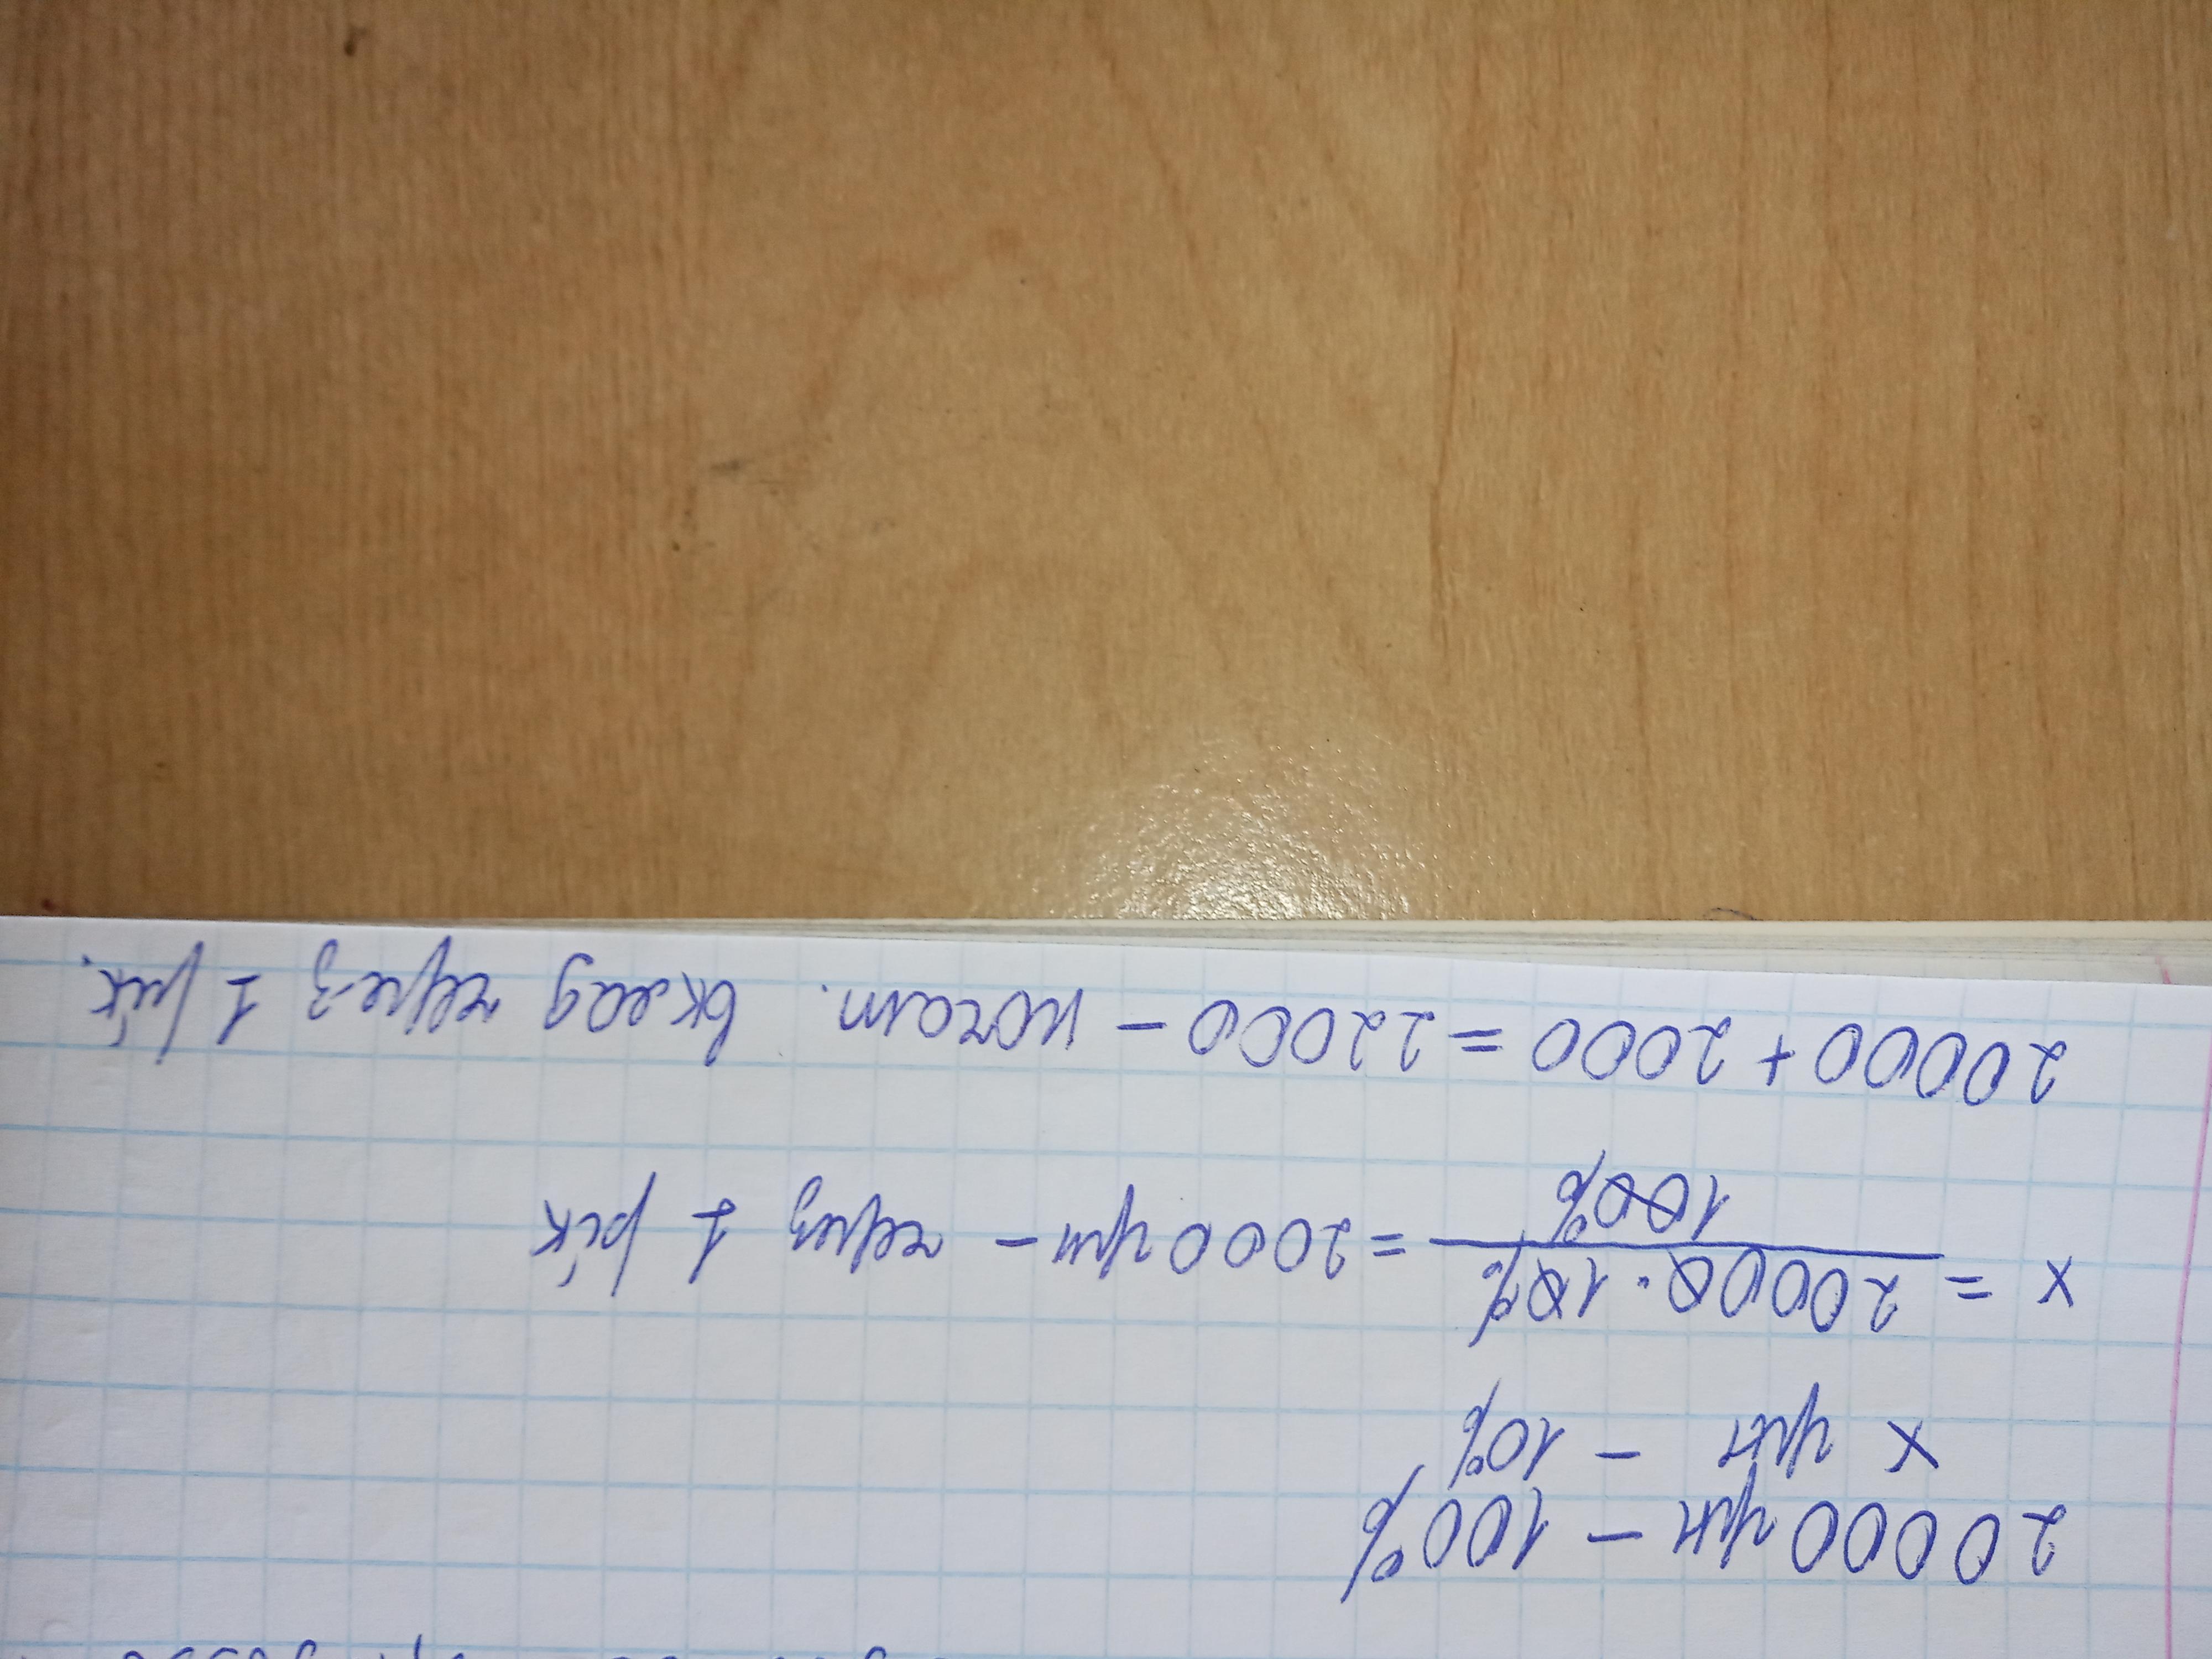 20000 грн - 100%
x грн - 10%
x = 20000 · 10% / 100% = 2000 грн - через 1 рік
20000 + 2000 = 22000 - почат. вклад через 1 рік.